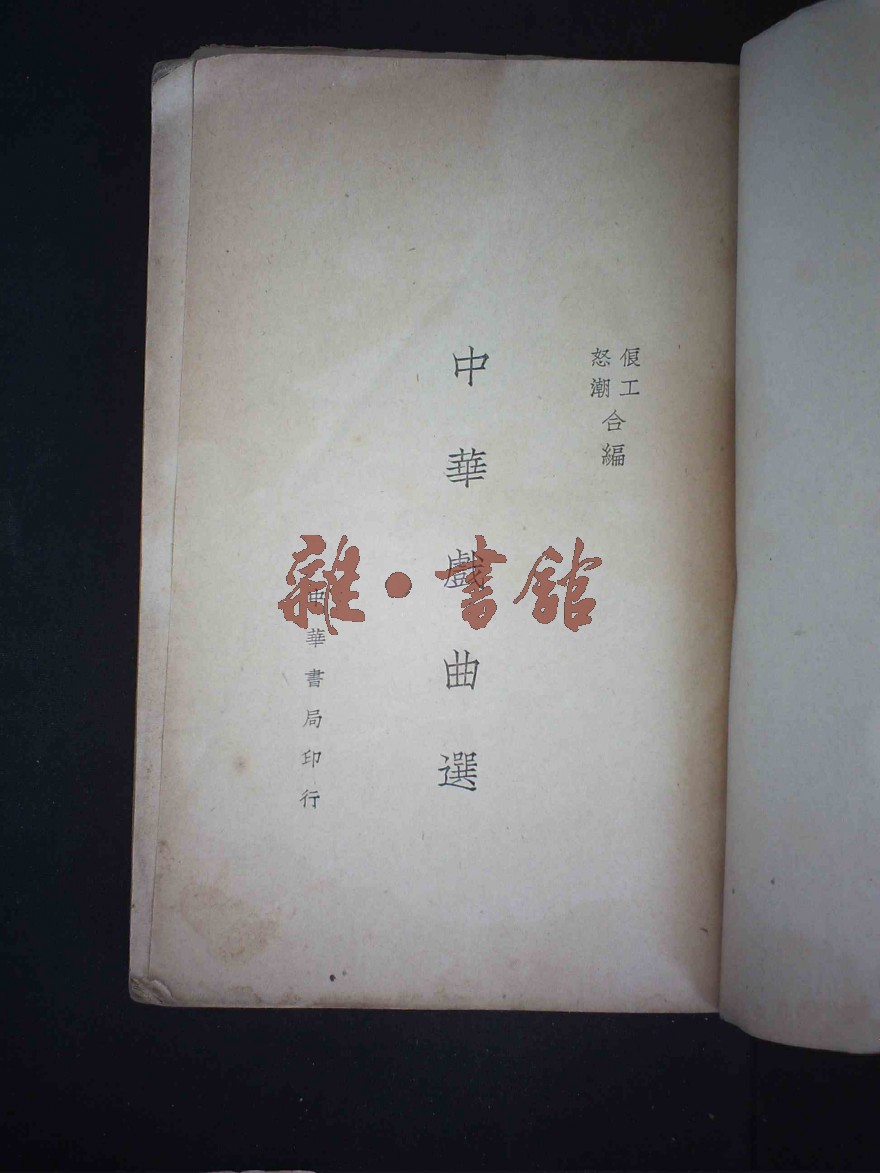 俍工
怒潮
合編
中華戲曲選
中華書局印行
雜·書館